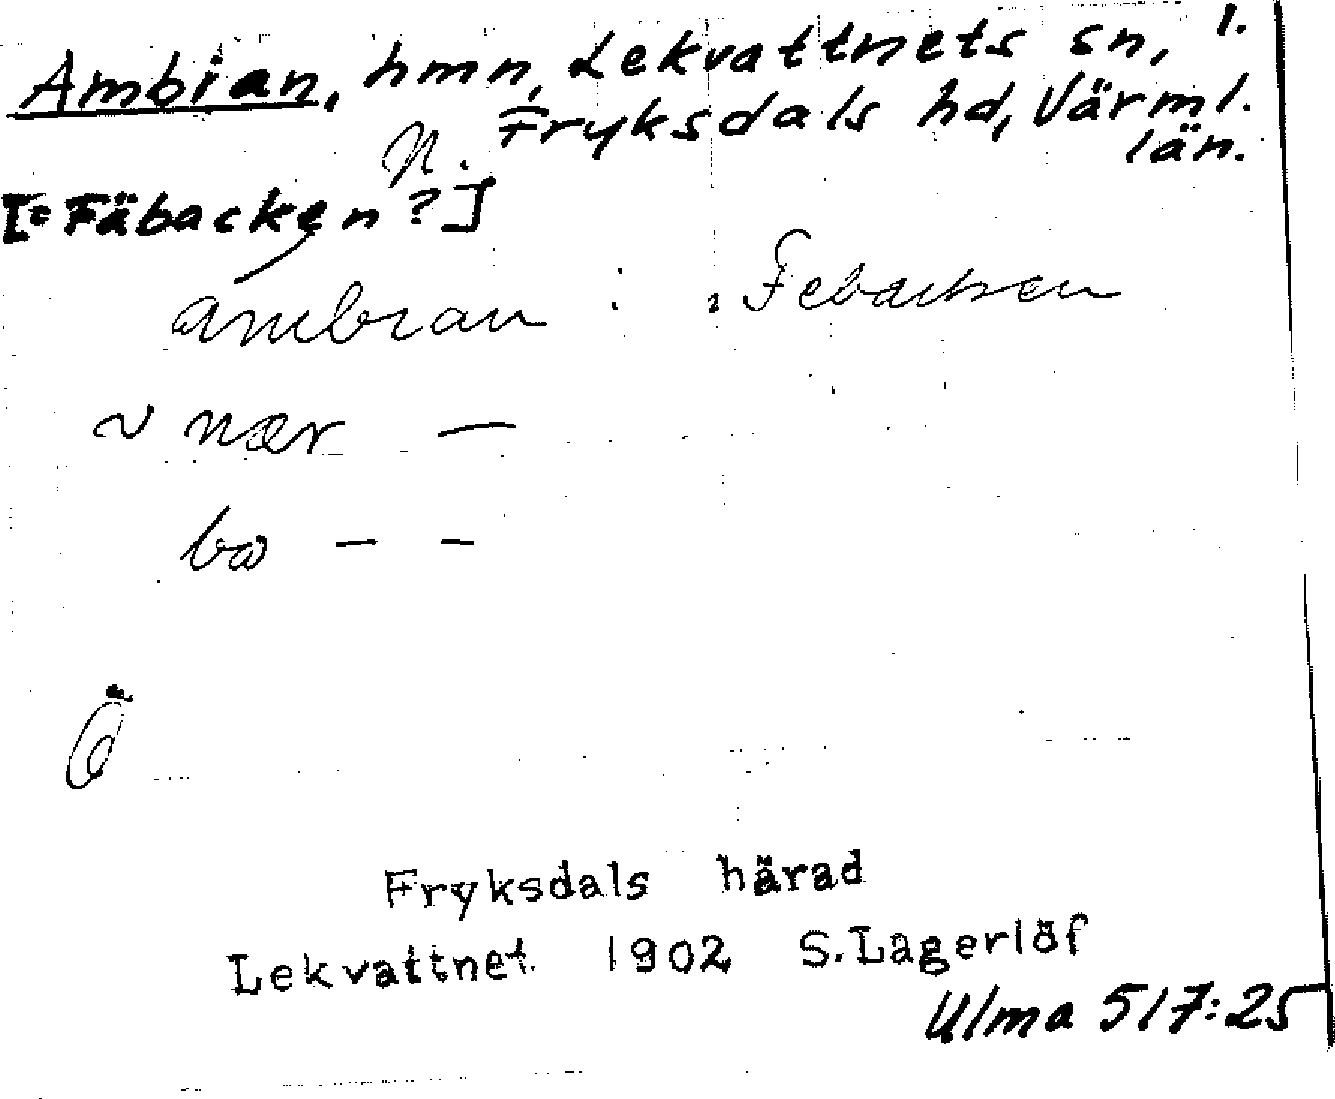 Ambian, hmn, Lekvattnets sn, l.
N. Fryksdals hd, Värml.
län.
[= Fäbacken?]
ambian : Febacken
~ nær —
bo — —
Ö
Fryksdals härad
Lekvattnet 1902 S. Lagerlöf
Ulma 517:25